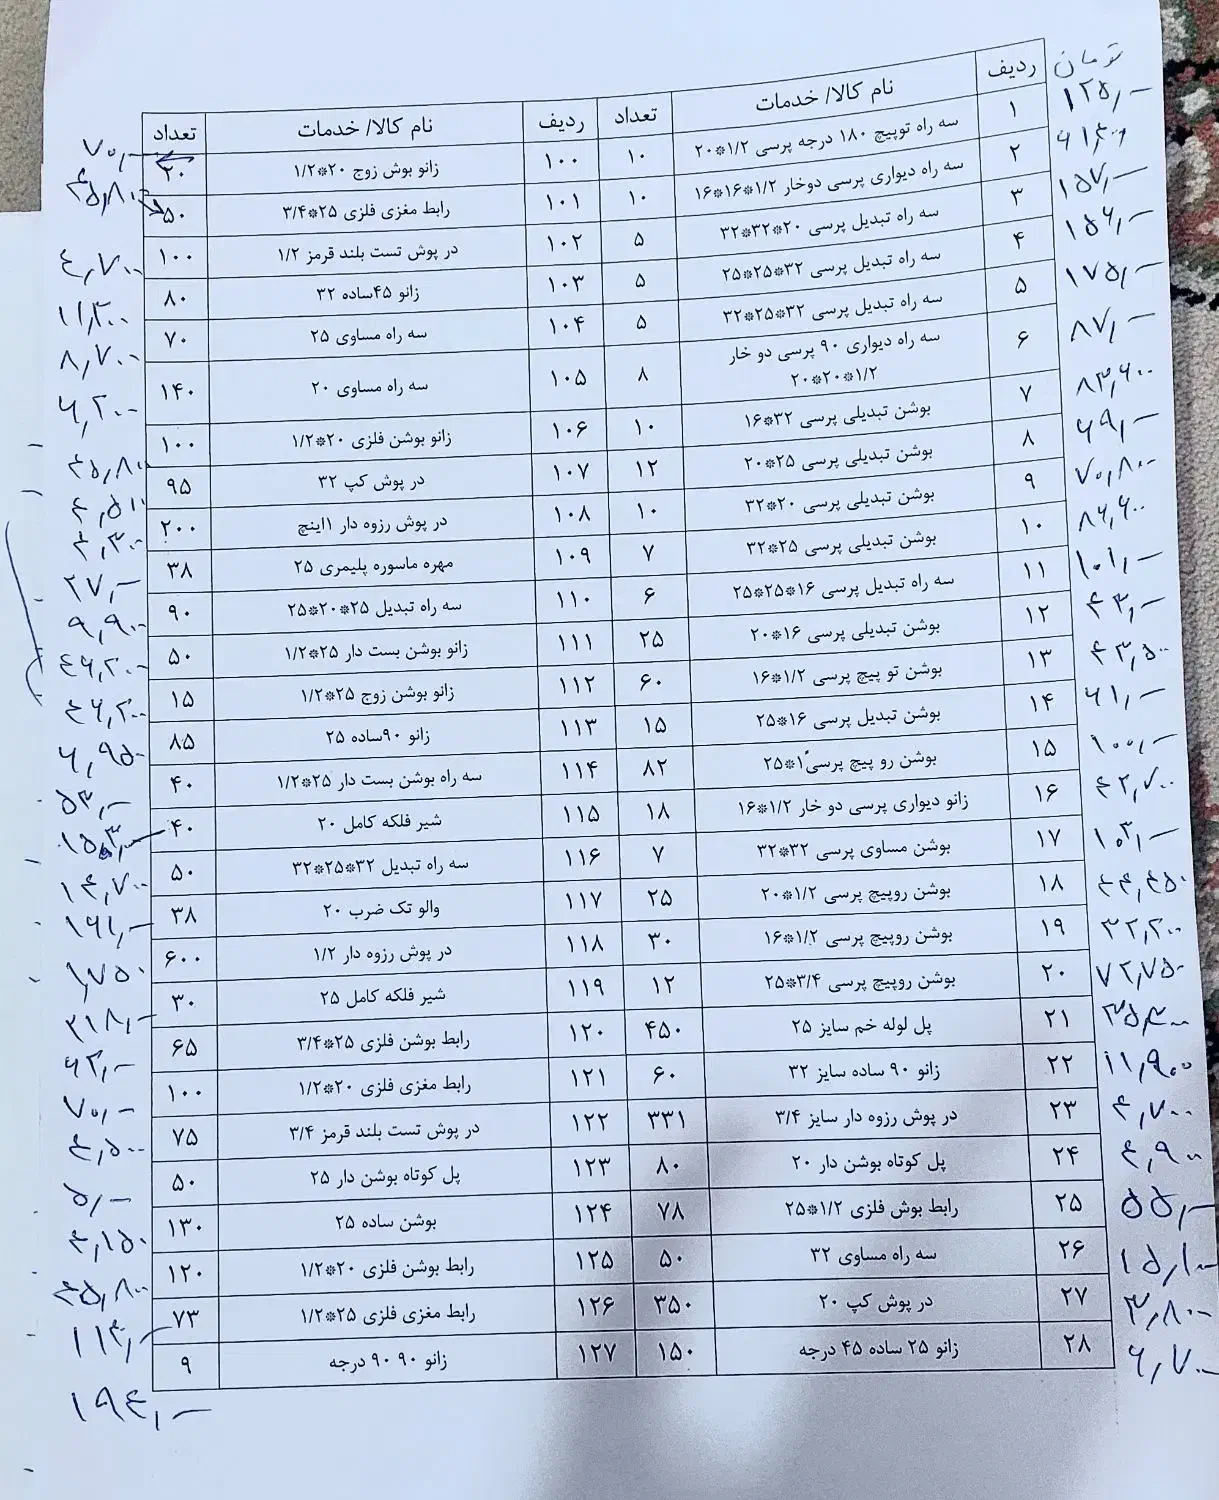 تومان
ردیف نام کالا/ خدمات تعداد ردیف نام کالا/ خدمات تعداد
۱۲۵٫- ۱ سه راه توپیچ ۱۸۰ درجه پرسی ۱/۲*۲۰ ۱۰ ۱۰۰ زانو بوش زوج ۲۰*۱/۲ ۲۰ ۷۰٫-
۲ سه راه دیواری پرسی دوخار ۱/۲*۱۶*۱۶ ۱۰ ۱۰۱ رابط مغزی فلزی ۲۵*۳/۴ ۵۰
۱۵۷٫- ۳ سه راه تبدیل پرسی ۲۰*۳۲*۳۲ ۵ ۱۰۲ در پوش تست بلند قرمز ۱/۲ ۱۰۰ ۴٫۷۰۰
۱۵۶٫- ۴ سه راه تبدیل پرسی ۳۲*۲۵*۲۵ ۵ ۱۰۳ زانو ۴۵ساده ۳۲ ۸۰ ۱۱٫۳۰۰
۱۷۵٫- ۵ سه راه تبدیل پرسی ۳۲*۲۵*۳۲ ۵ ۱۰۴ سه راه مساوی ۲۵ ۷۰ ۸٫۷۰۰
۸۷٫- ۶ سه راه دیواری ۹۰ پرسی دو خار ۱/۲*۲۰*۲۰ ۸ ۱۰۵ سه راه مساوی ۲۰ ۱۴۰ ۶٫۲۰۰
۸۳٫۶۰۰ ۷ بوشن تبدیلی پرسی ۳۲*۱۶ ۱۰ ۱۰۶ زانو بوشن فلزی ۲۰*۱/۲ ۱۰۰ ۴۵٫۸۰۰
۶۹٫- ۸ بوشن تبدیلی پرسی ۲۵*۲۰ ۱۲ ۱۰۷ در پوش کپ ۳۲ ۹۵
۷۰٫۸۰۰ ۹ بوشن تبدیلی پرسی ۲۰*۳۲ ۱۰ ۱۰۸ در پوش رزوه دار ۱اینچ ۲۰۰
۸۶٫۶۰۰ ۱۰ بوشن تبدیلی پرسی ۲۵*۳۲ ۷ ۱۰۹ مهره ماسوره پلیمری ۲۵ ۳۸ ۲۷٫-
۱۰۱٫- ۱۱ سه راه تبدیل پرسی ۱۶*۲۵*۲۵ ۶ ۱۱۰ سه راه تبدیل ۲۵*۲۰*۲۵ ۹۰ ۹٫۹۰۰
۴۳٫- ۱۲ بوشن تبدیلی پرسی ۱۶*۲۰ ۲۵ ۱۱۱ زانو بوشن بست دار ۲۵*۱/۲ ۵۰ ۴۶٫۲۰۰
۴۳٫۵۰۰ ۱۳ بوشن تو پیچ پرسی ۱/۲*۱۶ ۶۰ ۱۱۲ زانو بوشن زوج ۲۵*۱/۲ ۱۵ ۴۶٫۲۰۰
۶۱٫- ۱۴ بوشن تبدیل پرسی ۱۶*۲۵ ۱۵ ۱۱۳ زانو ۹۰ساده ۲۵ ۸۵ ۶٫۹۵۰
۱۰۰٫- ۱۵ بوشن رو پیچ پرسی ۱ً*۲۵ ۸۲ ۱۱۴ سه راه بوشن بست دار ۲۵*۱/۲ ۴۰ ۵۳٫-
۴۲٫۷۰۰ ۱۶ زانو دیواری پرسی دو خار ۱/۲*۱۶ ۱۸ ۱۱۵ شیر فلکه کامل ۲۰ ۴۰
۱۰۳٫- ۱۷ بوشن مساوی پرسی ۳۲*۳۲ ۷ ۱۱۶ سه راه تبدیل ۳۲*۲۵*۳۲ ۵۰ ۱۴٫۷۰۰
۴۴٫۴۵۰ ۱۸ بوشن روپیچ پرسی ۱/۲*۲۰ ۲۵ ۱۱۷ والو تک ضرب ۲۰ ۳۸ ۱۶۱٫-
۳۲٫۲۰۰ ۱۹ بوشن روپیچ پرسی ۱/۲*۱۶ ۳۰ ۱۱۸ در پوش رزوه دار ۱/۲ ۶۰۰ ۱٫۷۵۰
۷۲٫۷۵۰ ۲۰ بوشن روپیچ پرسی ۳/۴*۲۵ ۱۲ ۱۱۹ شیر فلکه کامل ۲۵ ۳۰ ۲۱۸٫-
۲۱ پل لوله خم سایز ۲۵ ۴۵۰ ۱۲۰ رابط بوشن فلزی ۲۵*۳/۴ ۶۵ ۶۲٫-
۱۱٫۹۰۰ ۲۲ زانو ۹۰ ساده سایز ۳۲ ۶۰ ۱۲۱ رابط مغزی فلزی ۲۰*۱/۲ ۱۰۰ ۷۰٫-
۴٫۷۰۰ ۲۳ در پوش رزوه دار سایز ۳/۴ ۳۳۱ ۱۲۲ در پوش تست بلند قرمز ۳/۴ ۷۵ ۴٫۵۰۰
۴٫۹۰۰ ۲۴ پل کوتاه بوشن دار ۲۰ ۸۰ ۱۲۳ پل کوتاه بوشن دار ۲۵ ۵۰ ۵٫-
۵۵٫- ۲۵ رابط بوش فلزی ۱/۲*۲۵ ۷۸ ۱۲۴ بوشن ساده ۲۵ ۱۳۰ ۴٫۱۵۰
۱۵٫۱۰۰ ۲۶ سه راه مساوی ۳۲ ۵۰ ۱۲۵ رابط بوشن فلزی ۲۰*۱/۲ ۱۲۰ ۴۵٫۸۰۰
۳٫۸۰۰ ۲۷ در پوش کپ ۲۰ ۳۵۰ ۱۲۶ رابط مغزی فلزی ۲۵*۱/۲ ۷۳ ۱۱۴٫-
۶٫۷۰۰ ۲۸ زانو ۲۵ ساده ۴۵ درجه ۱۵۰ ۱۲۷ زانو ۹۰ ۹۰ درجه ۹ ۱۹۴٫-